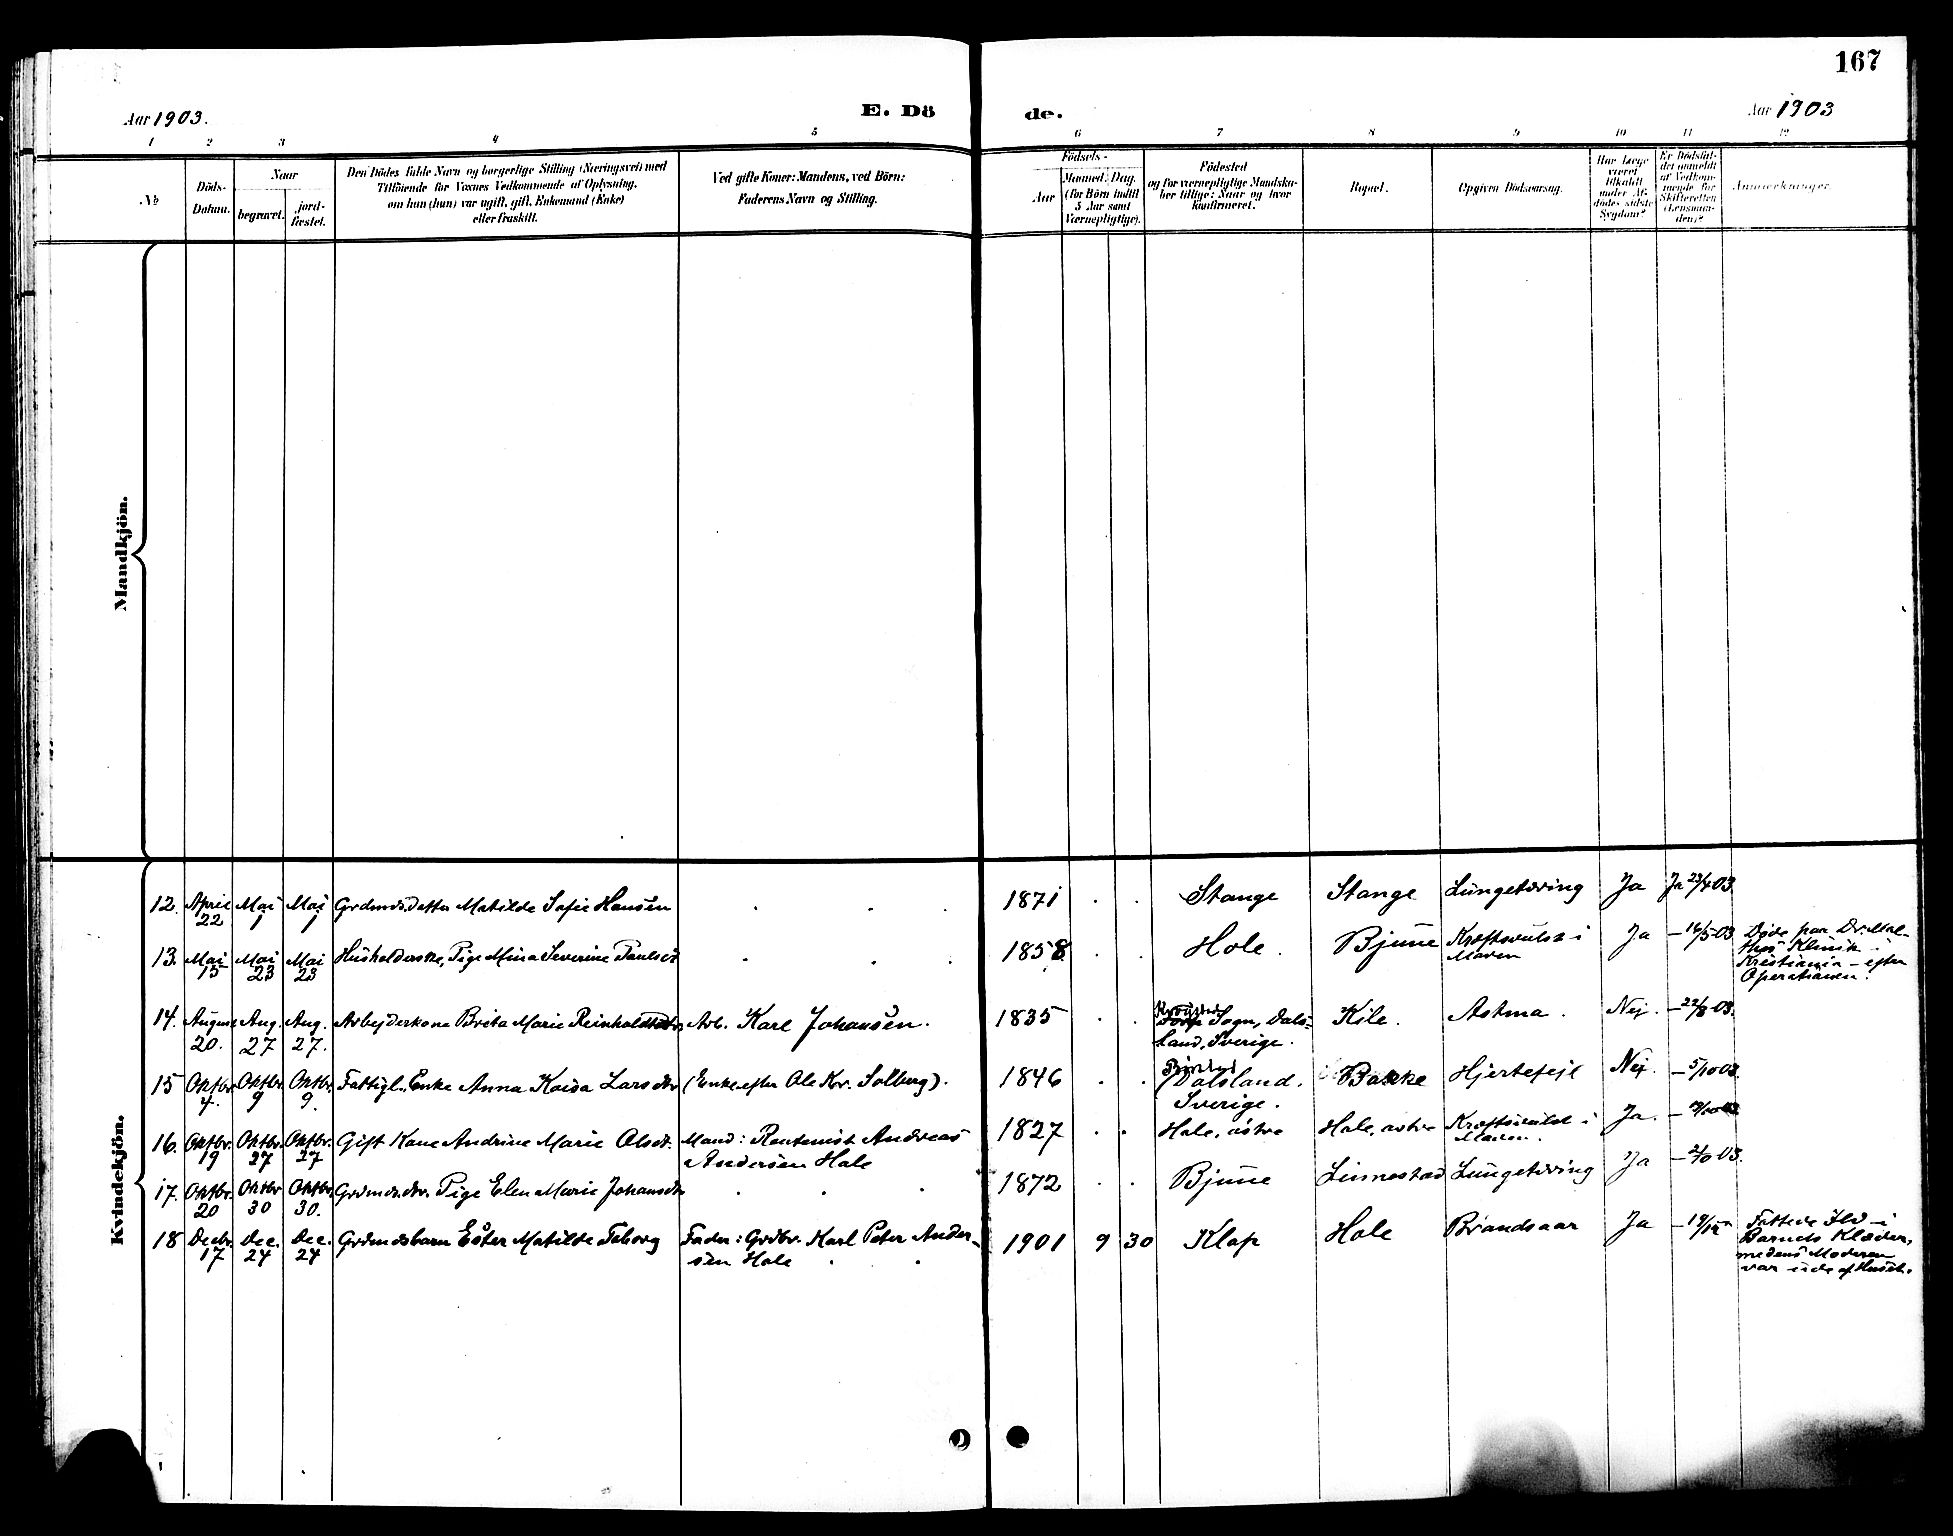 167
Aar 1903.
E. Dö
de.
Aar 1903
1 2 3 4 5 6 7 8 9 10 11 12
№
Döds-Datum.
Naar
begravet.
jord-fæstet.
Den Dödes fulde Navn og borgerlige Stilling (Næringsvei) med
Tilföiende for Voxnes Vedkommende af Oplysning,
om han (hun) var ugift, gift, Enkemand (Enke)
eller fraskilt.
Ved gifte Koner: Mandens, ved Börn:
Faderens Navn og Stilling.
Födsels-
Aar
Maaned. Dag.
(for Börn indtil
5 Aar samt
Værnepligtige).
Födested
og for værnepligtige Mandska-
ber tillige: Naar og hvor
konfirmeret.
Bopæl.
Opgiven Dödsaarsag.
Har Læge
været
tilkaldt
under Af-
dödes sidste
Sygdom?
Er Dödsfal-
det anmeldt
af Vedkom-
mende for
Skifteretten
(Lensman-
den)?
Anmærkninger.
Mandkjön.
Kvindekjön.
12. April 22 Mai 1 Mai 1 Grdmds. Datter Matilde Sofie Hansen 1871 Stange Stange Lungetæring Ja Ja 23/4 03
13. Mai 15 Mai 23 Mai 23 Husholderske, Pige Mina Severine Paulsdt 1858 Hole. Bjune Kræftsvulst i
Maven Ja – 16/5 03 Døde paa Dr. Mal-
thes Klinik i
Kristiania – efter
Operationen.
14. August 20. Aug. 27 Aug. 27. Arbejderkone Brita Marie Reinholdtsdtr Arb. Karl Johansen. 1835 Sogn, Dals-
land, Sverige. Kile. Astma. Nej. – 22/8 03.
15 Oktbr. 4. Oktbr. 9 Oktbr. 9. Fattigl., Enke Anna Kaisa Larsdtr (Enke efter Ole Kr. Solberg). 1846 Dalsland.
Sverige. Bakke Hjertefejl Nej. – 5/10 03.
16. Oktbr. 19 Oktbr. 27 Oktbr. 27 Gift Kone Andrine Marie Olsdt. Mand: Rentenist Andreas
Andersen Hole 1827 Hole, østre Hole, østre Kræftsvulst i
Maven. Ja.
17. Oktbr. 20 Oktbr 30 Oktbr. 30. Grdmds. dtr. Pige Elen Marie Johansdtr 1872 Bjune Linnestad Lungetæring Ja
18 Decbr. 17 Dec. 24 Dec. 24 Grdmdsbarn Ester Matilde Faborg Fader: Grdbr. Karl Peter Ander-
sen Hole 1901 9 30 Klop Hole Brandsaar Ja – 19/12 Fattede Ild i
Barnets Klæder,
medens Moderen
var ude af Huset.